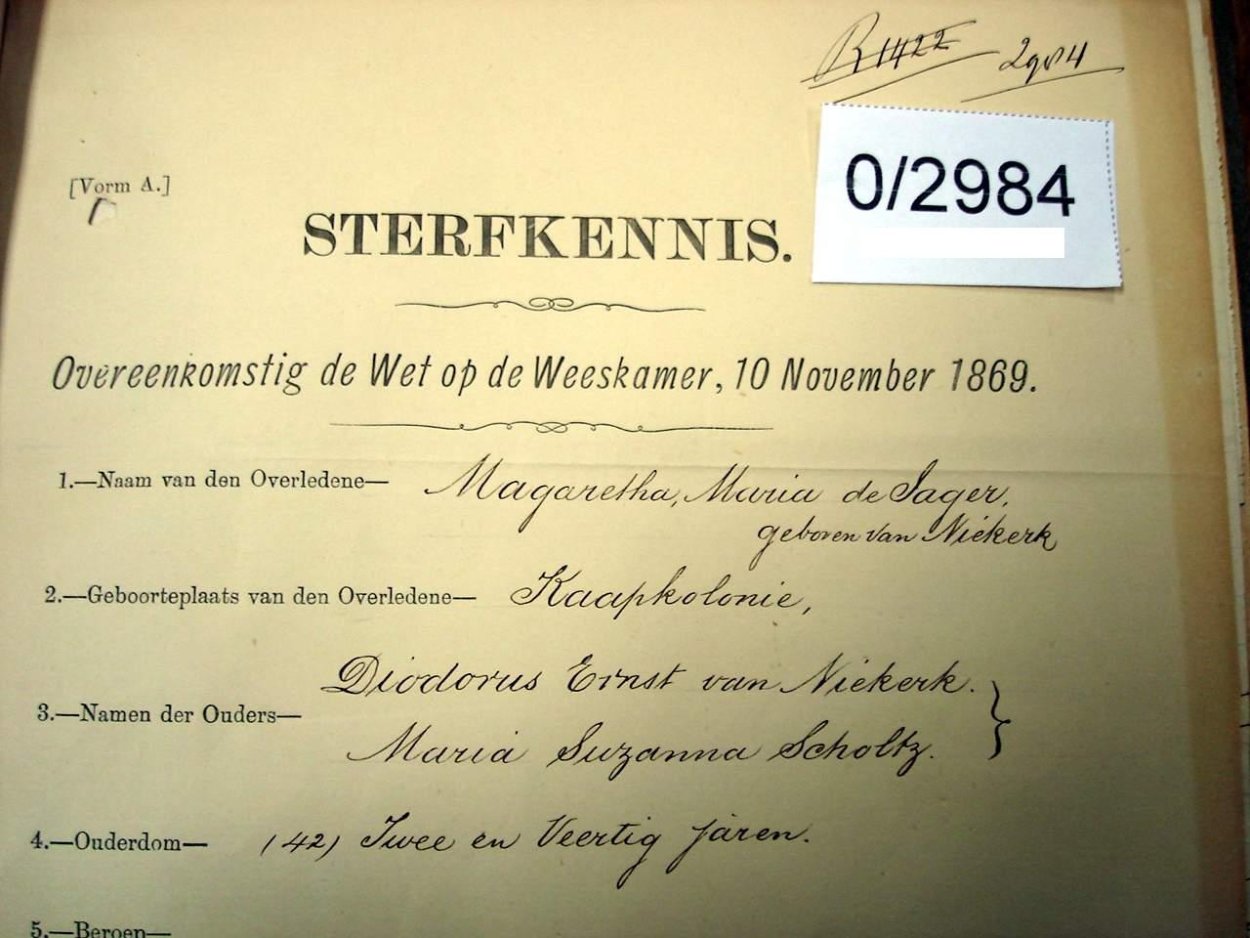 R1422 2984
0/2984
[Vorm A.]
STERFKENNIS.
Overeenkomstig de Wet op de Weeskamer, 10 November 1869.
1.—Naam van den Overledene— Magaretha, Maria de Jager,
geboren van Niekerk
2.—Geboorteplaats van den Overledene— Kaapkolonie,
Diodorus Ernst van Niekerk.
3.—Namen der Ouders—
Maria Suzanna Scholtz.
4.—Ouderdom— (42) Twee en Veertig jaren.
5.—Beroep—